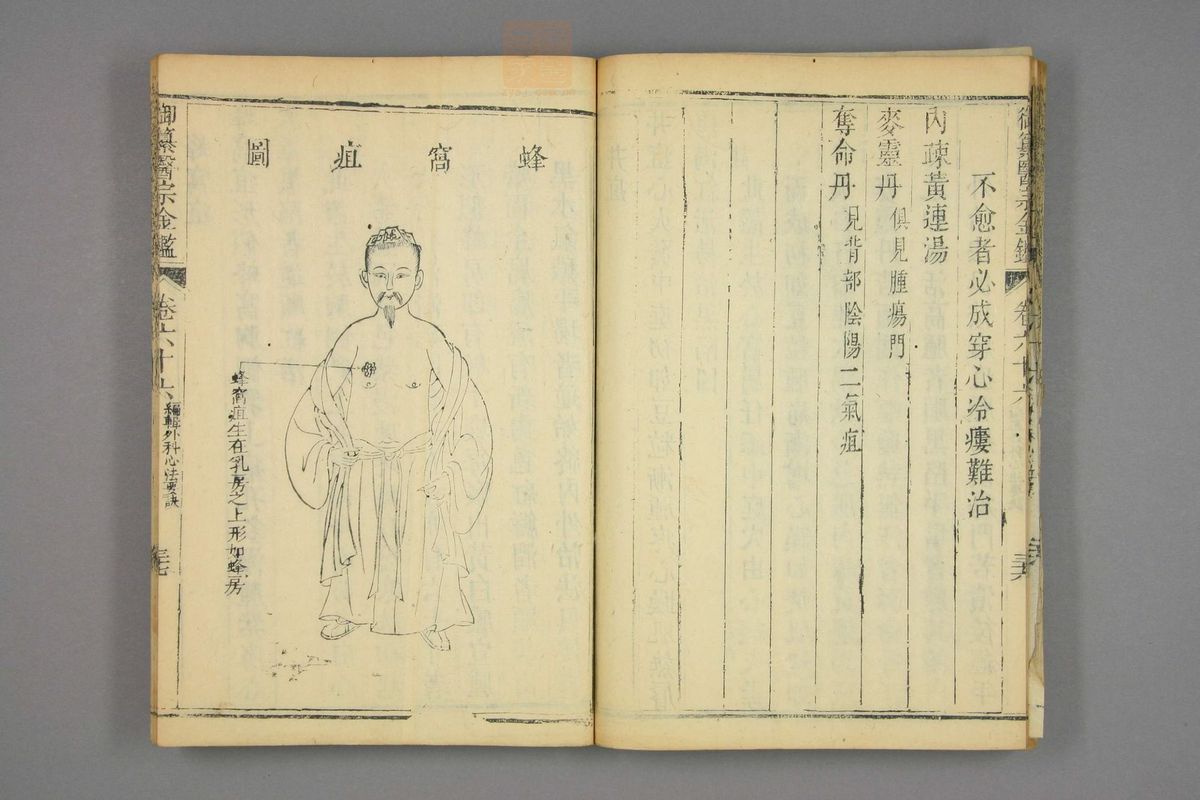 不愈者必成穿心冷瘻難治
內疎黃連湯
麥靈丹 俱見腫瘍門
奪命丹 見背部陰陽二氣疽
蜂窩疽圖
蜂窩疽生在乳房之上形如蜂房
御纂醫宗金鑑
卷六十六
編輯外科心法要訣
三七
御纂醫宗金鑑
卷六十六
三六